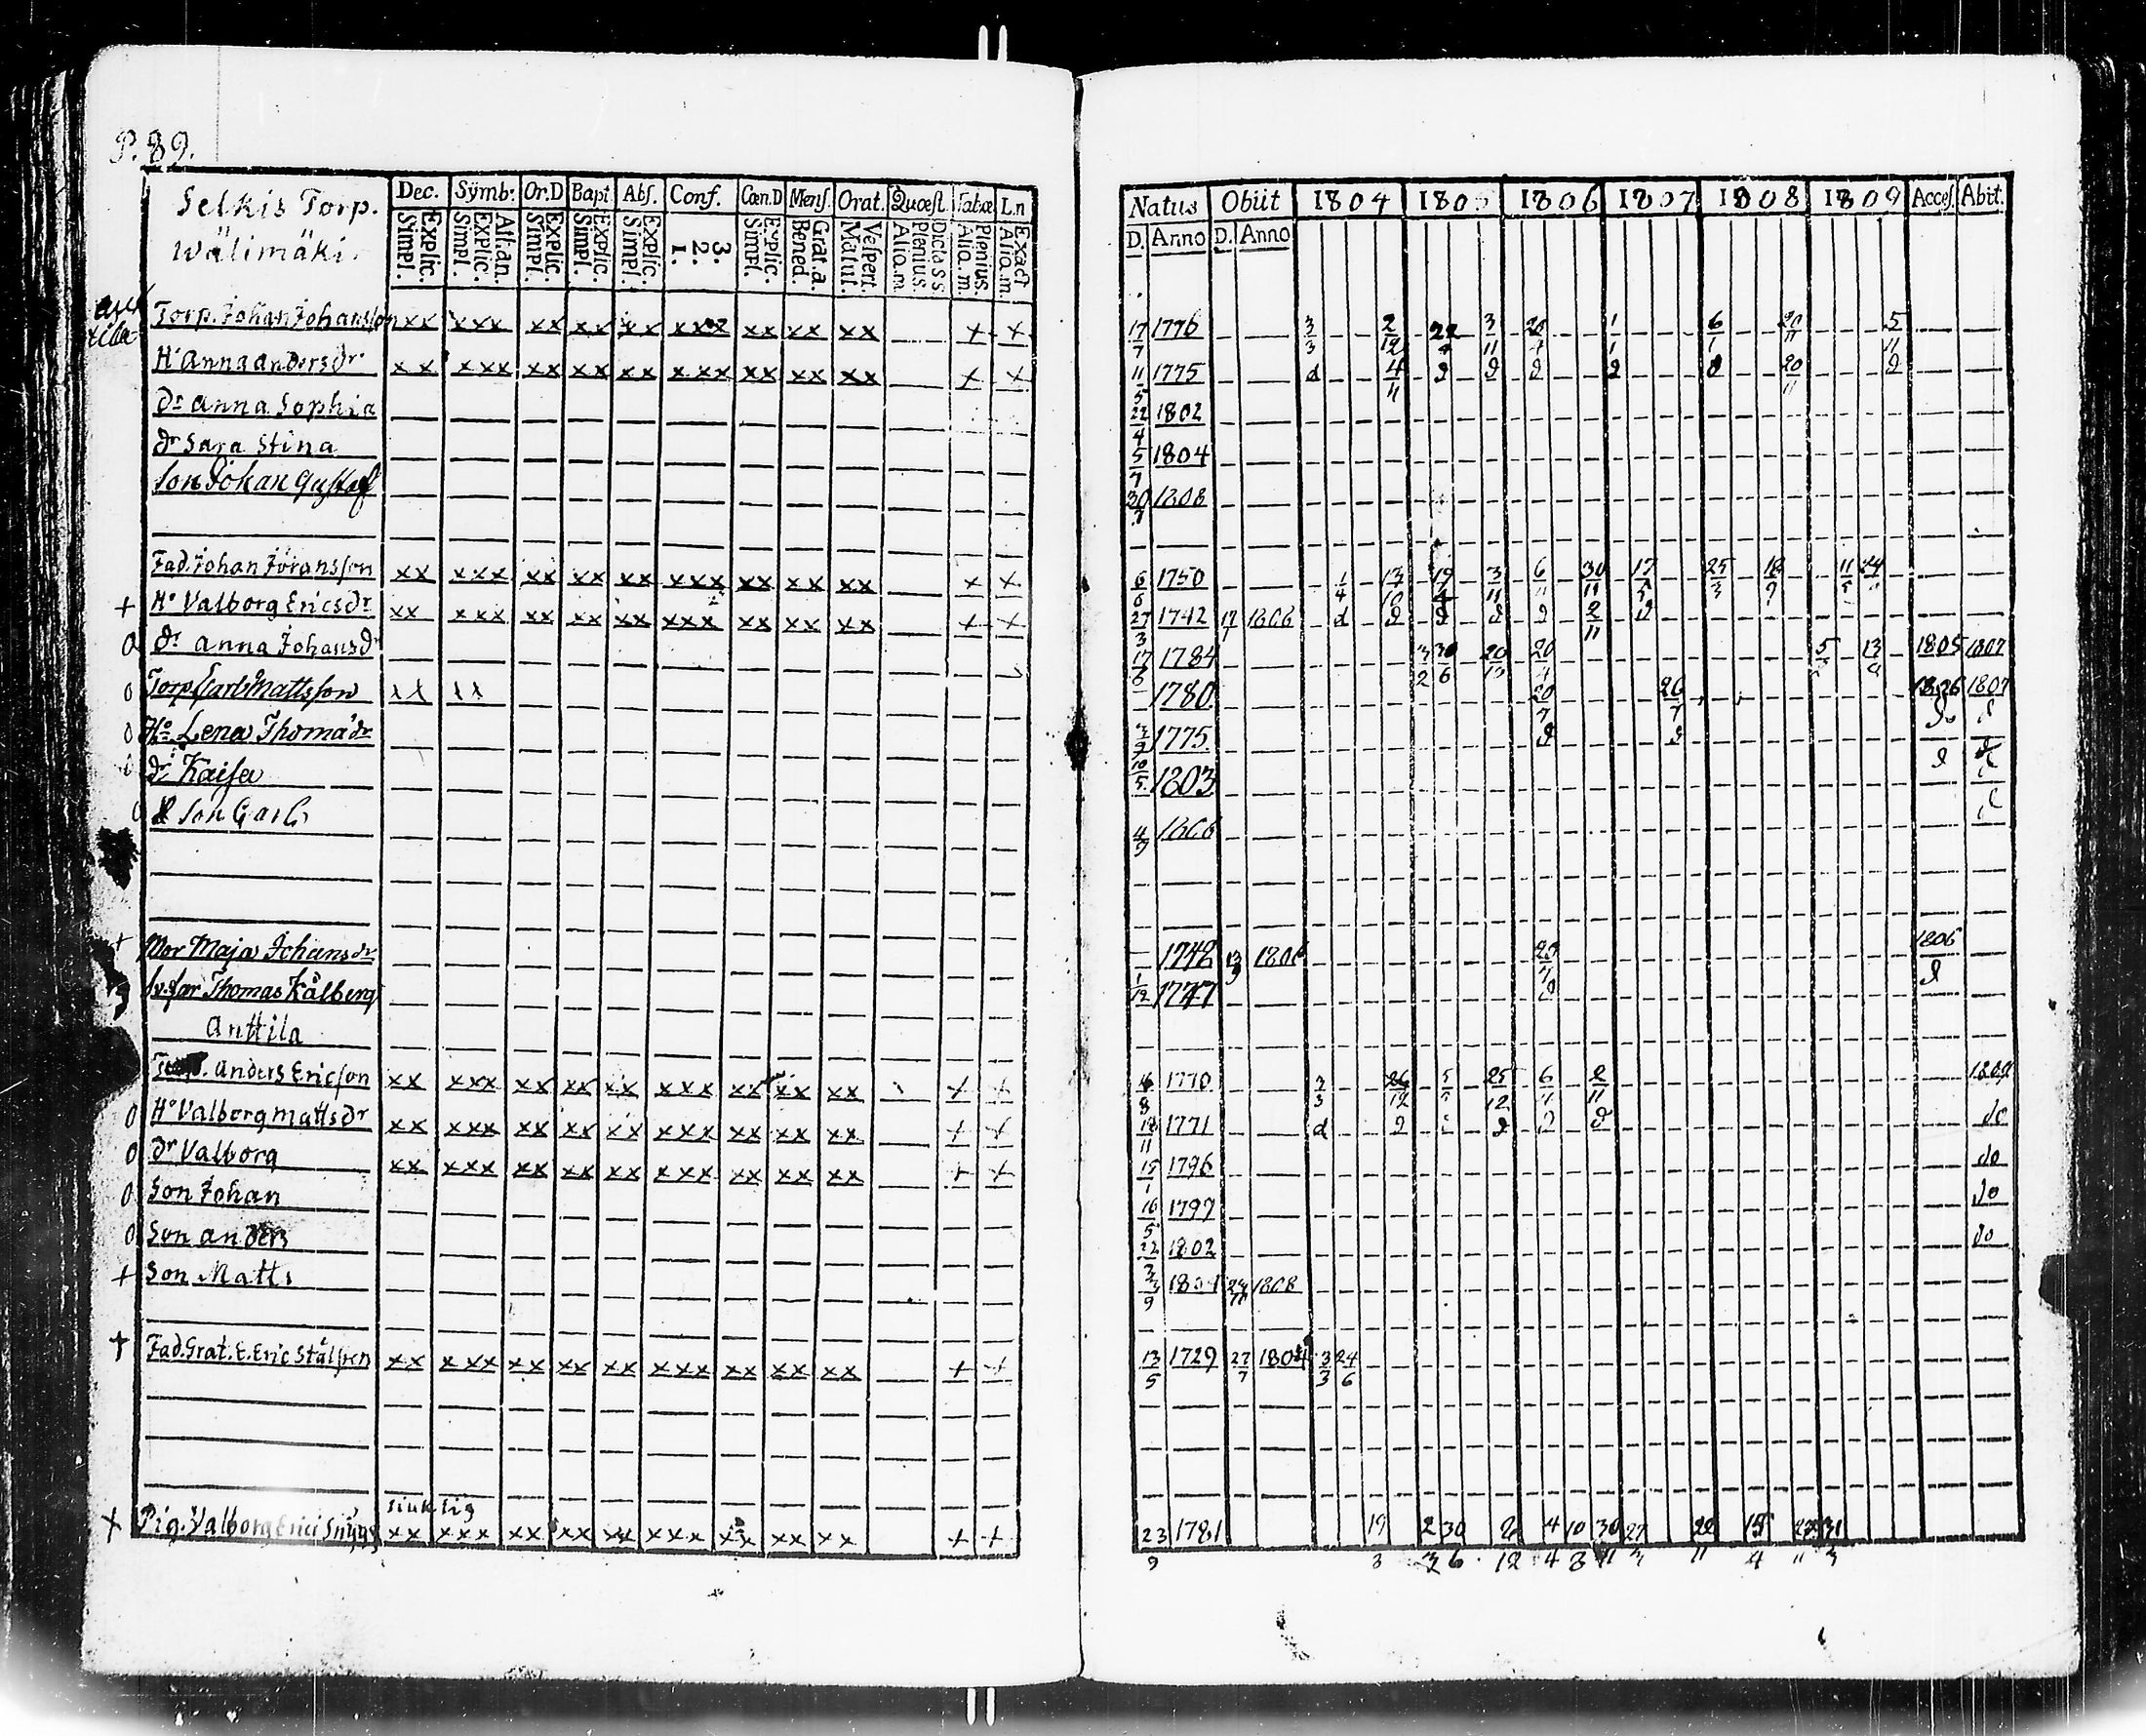 P. 89.
Selkis Torp.
Wälimäki.
Dec. Symb: Or.D Bapt Abs. Conf. Cœn.D Mens. Orat. Quæst. Tabæ L.n
Explic. Simpl. Athan. Explic. Simpl. Explic. Simpl. Explic. Simpl. Explic. Simpl. 3. 2. 1. Explic. Simpl. Grat.a. Bened. Vespert. Matut. Dicta S.S. Plenius. Aliq.m. Plenius. Aliq.m. Exact Aliq.m.
Natus Obiit 1804 1805 1806 1807 1808 1809 Acces. Abit.
D. Anno D. Anno
Torp. Johan Johansson xx xxx xx xx xx xxx xx xx xx x x 17/7 1776 3/3 2/12 3/11 1/1 6/1 20/11 5/11
Hu Anna Andersdr xx xxx xx xx xx xxx xx xx xx x x 11/5 1775 d 4/11 d d d d d 20/11 d
dr Anna Sophia 22/4 1802
dr Sara Stina 5/7 1804
Son Johan Gustaf 30/7 1808
Fad. Johan Jöransson xx xxx xx xx xx xxx xx xx xx x x 6/6 1750 1/4 13/10 19/4 3/11 6/11 30/11 17/5 25/3 18/9 11/5 24
+ Hu Valborg Ericsdr xx xxx xx xx xx xxx xx xx xx x x 27/3 1742 17 1806 d d d d d 2/11 d
dr Anna Johansdr 17/6 1784 3/2 30/6 20 20/4 5 13 1805 1807
o Torp Carl Mattsson xx xx 1780 20/7 26/7 1806 1807
o Hu Lena Thomadr 3/9 1775 d d do d
dr Kaisa 10/5 1803 d d
o Son Carl 4/9 1806 d
+ Mor Maja Johansdr 1742 13/9 1806 20/7 1806
Thomas Kälberg 1/12 1777 d d
Anttila
Anders Ericson xx xxx xx xx xx xxx xx xx xx x x 16/8 1770 3/3 26/12 5 25/12 6/11 2/11 1809
o Hu Valborg Mattsdr xx xxx xx xx xx xxx xx xx xx x x 18/11 1771 d d d d d do
o dr Valborg xx xxx xx xx xx xxx xx xx xx x x 15/1 1796 do
o Son Johan 16/5 1797 do
o Son Anders 22/3 1802 do
+ Son Matts 9 24/11 1808
+ Fad. Grat. E. Eric Stålsten xx xxx xx xx xx xxx xx xx xx x x 13/5 1729 27/7 1804 3/3 24/6
siuklig
+ Pig. Valborg xx xxx xx xx xx xxx xx xx xx x x 23/9 1781 19/3 2/3 30/6 2/12 4/4 10/8 30/11 27/3 22/11 15/4 31/3